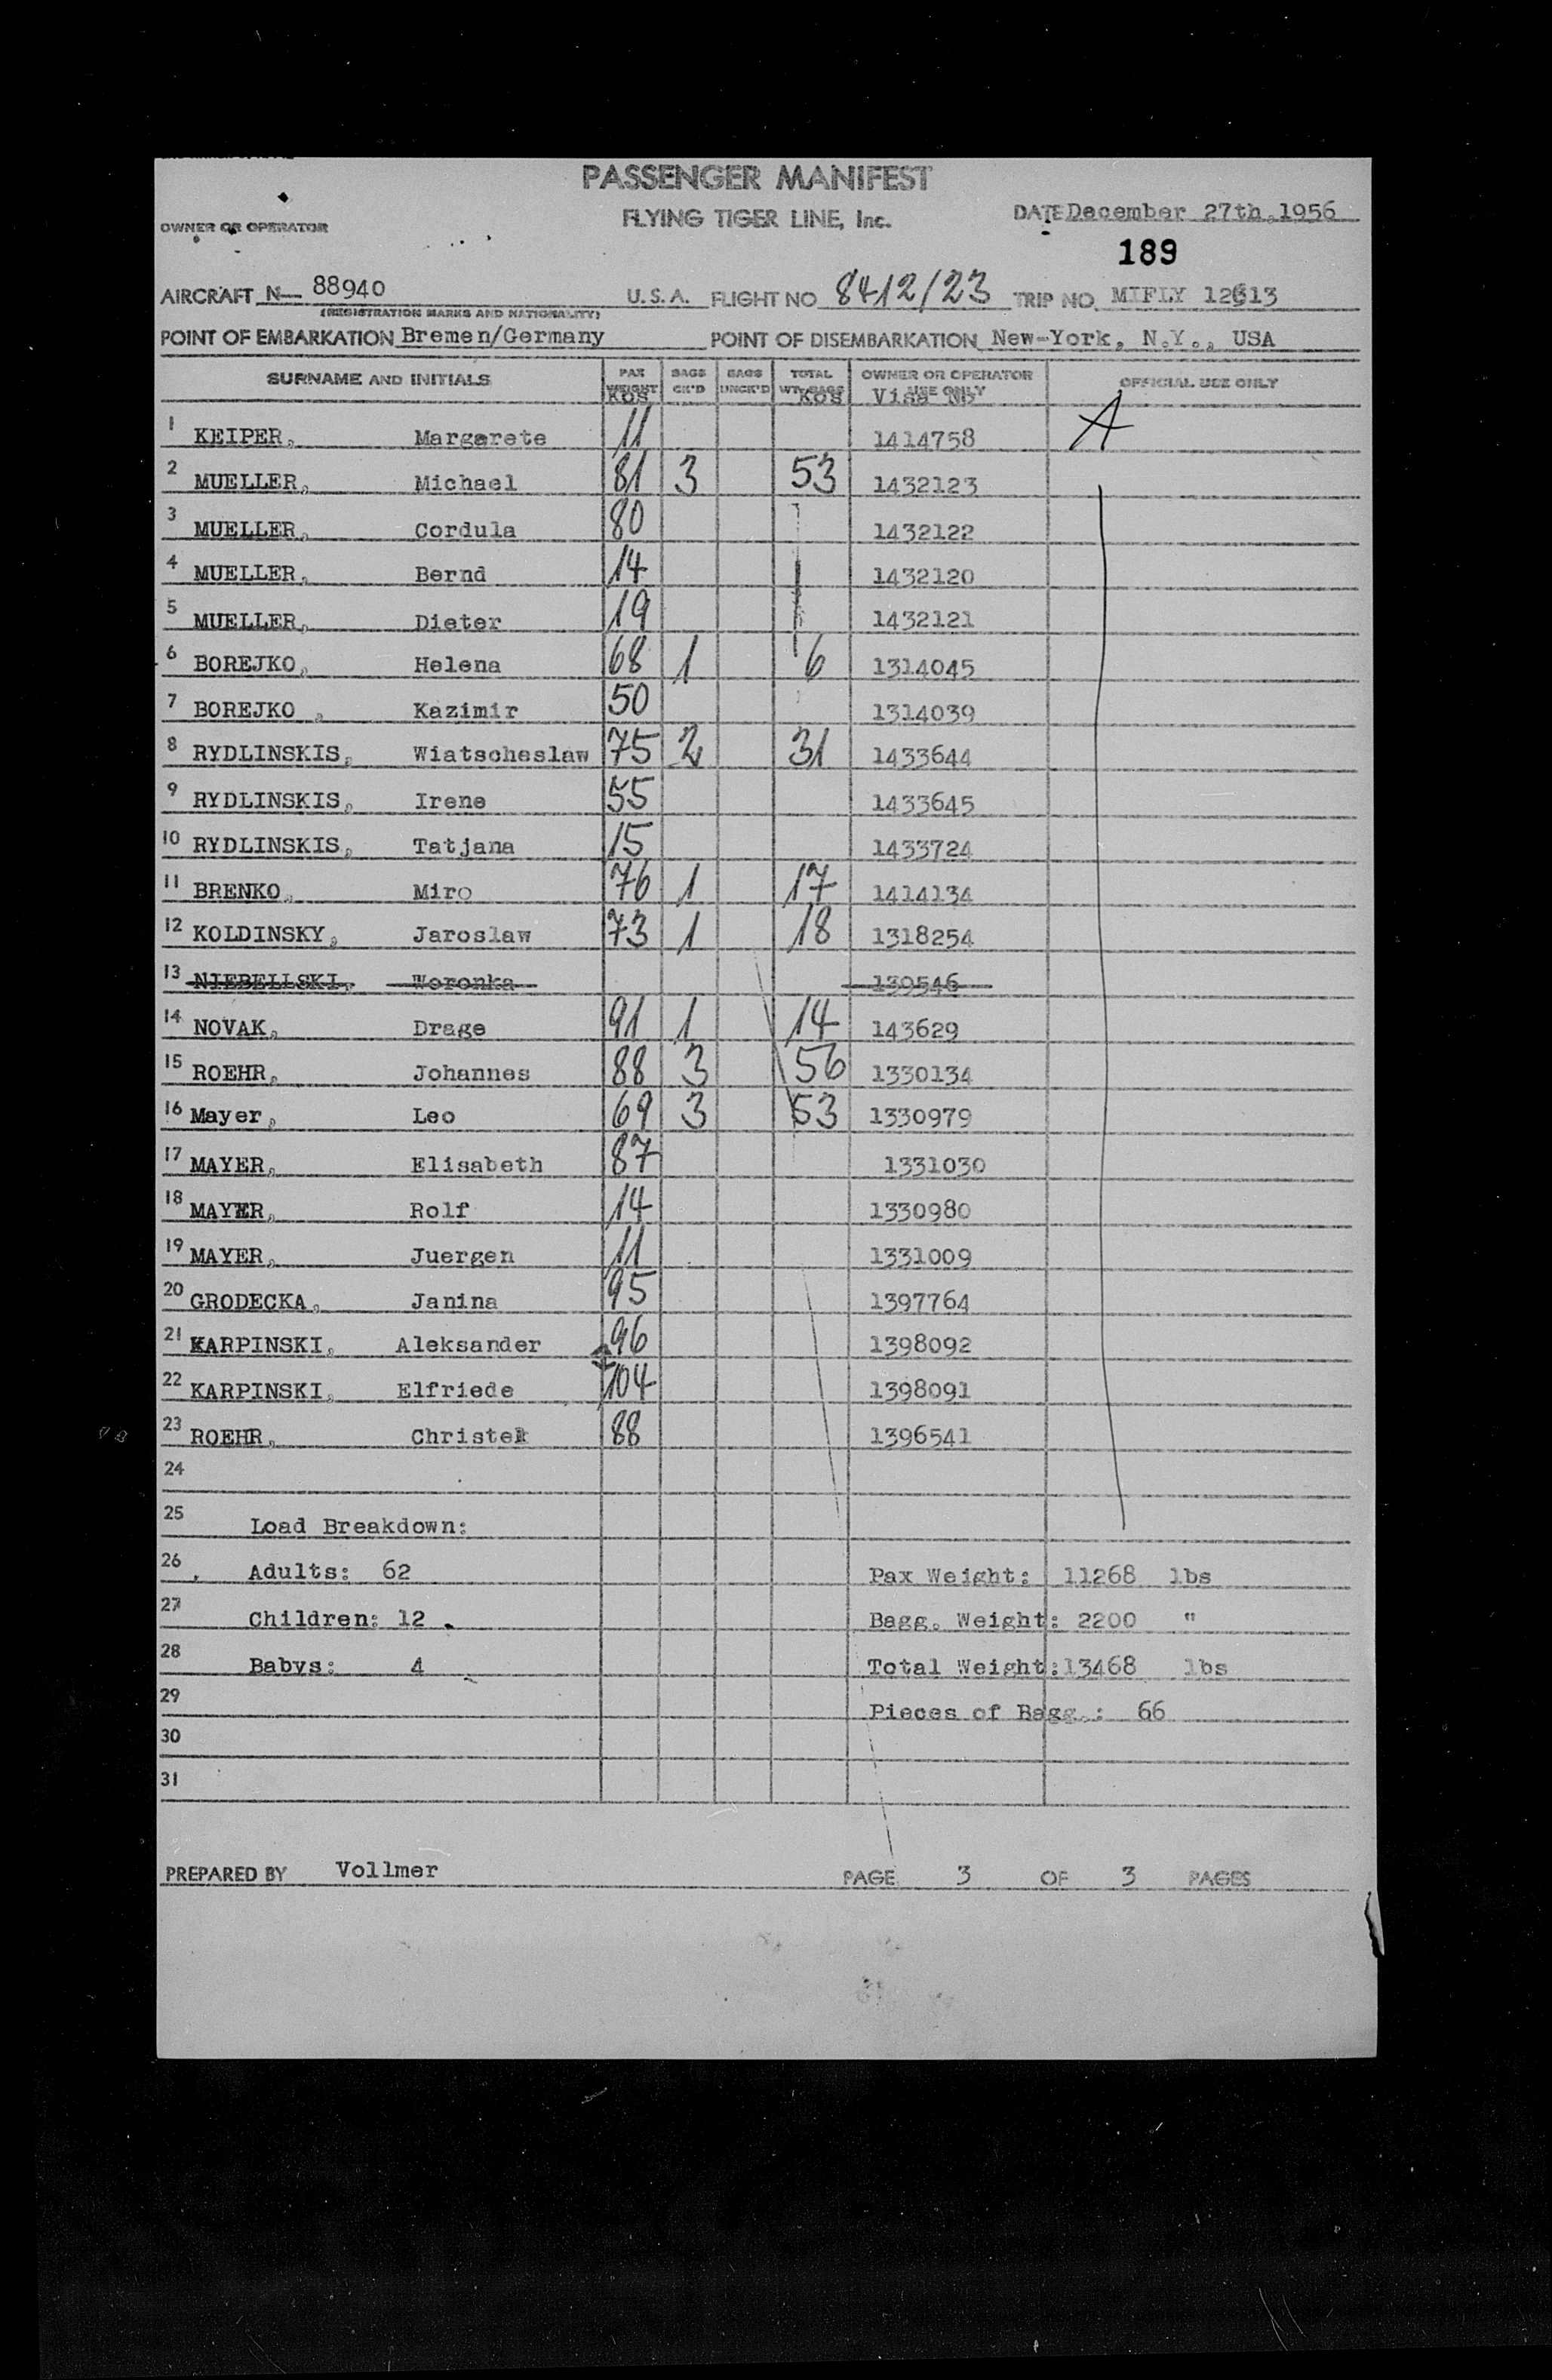 PASSENGER MANIFEST
OWNER OR OPERATOR FLYING TIGER LINE, Inc. DATE December 27th, 1956
189
AIRCRAFT N— 88940 U.S.A. FLIGHT NO 8412/23 TRIP NO. MIFLY 12613
(REGISTRATION MARKS AND NATIONALITY)
POINT OF EMBARKATION Bremen/Germany POINT OF DISEMBARKATION New-York, N.Y., USA
SURNAME AND INITIALS PAX WEIGHT KOS BAGS CK'D BAGS UNCK'D TOTAL WT. BAGS KOS OWNER OR OPERATOR USE ONLY Visa No OFFICIAL USE ONLY
1 KEIPER, Margarete 11 1414758 A
2 MUELLER, Michael 81 3 53 1432123
3 MUELLER, Cordula 80 1432122
4 MUELLER, Bernd 14 1432120
5 MUELLER, Dieter 19 1432121
6 BOREJKO, Helena 68 1 6 1314045
7 BOREJKO , Kazimir 50 1314039
8 RYDLINSKIS, Wiatscheslaw 75 2 31 1433644
9 RYDLINSKIS, Irene 55 1433645
10 RYDLINSKIS, Tatjana 15 1433724
11 BRENKO, Miro 76 1 17 1414134
12 KOLDINSKY, Jaroslaw 73 1 18 1318254
13 NIEBELLSKI, Woronka 139546
14 NOVAK, Drage 91 1 14 143629
15 ROEHR, Johannes 88 3 56 1330134
16 Mayer, Leo 69 3 53 1330979
17 MAYER, Elisabeth 87 1331030
18 MAYER, Rolf 14 1330980
19 MAYER, Juergen 11 1331009
20 GRODECKA, Janina 95 1397764
21 KARPINSKI, Aleksander 96 1398092
22 KARPINSKI, Elfriede 104 1398091
23 ROEHR, Christel 88 1396541
24
25 Load Breakdown:
26 Adults: 62 Pax Weight: 11268 lbs
27 Children: 12 Bagg. Weight: 2200 "
28 Babys: 4 Total Weight: 13468 lbs
29 Pieces of Bagg.: 66
30
31
PREPARED BY Vollmer PAGE 3 OF 3 PAGES